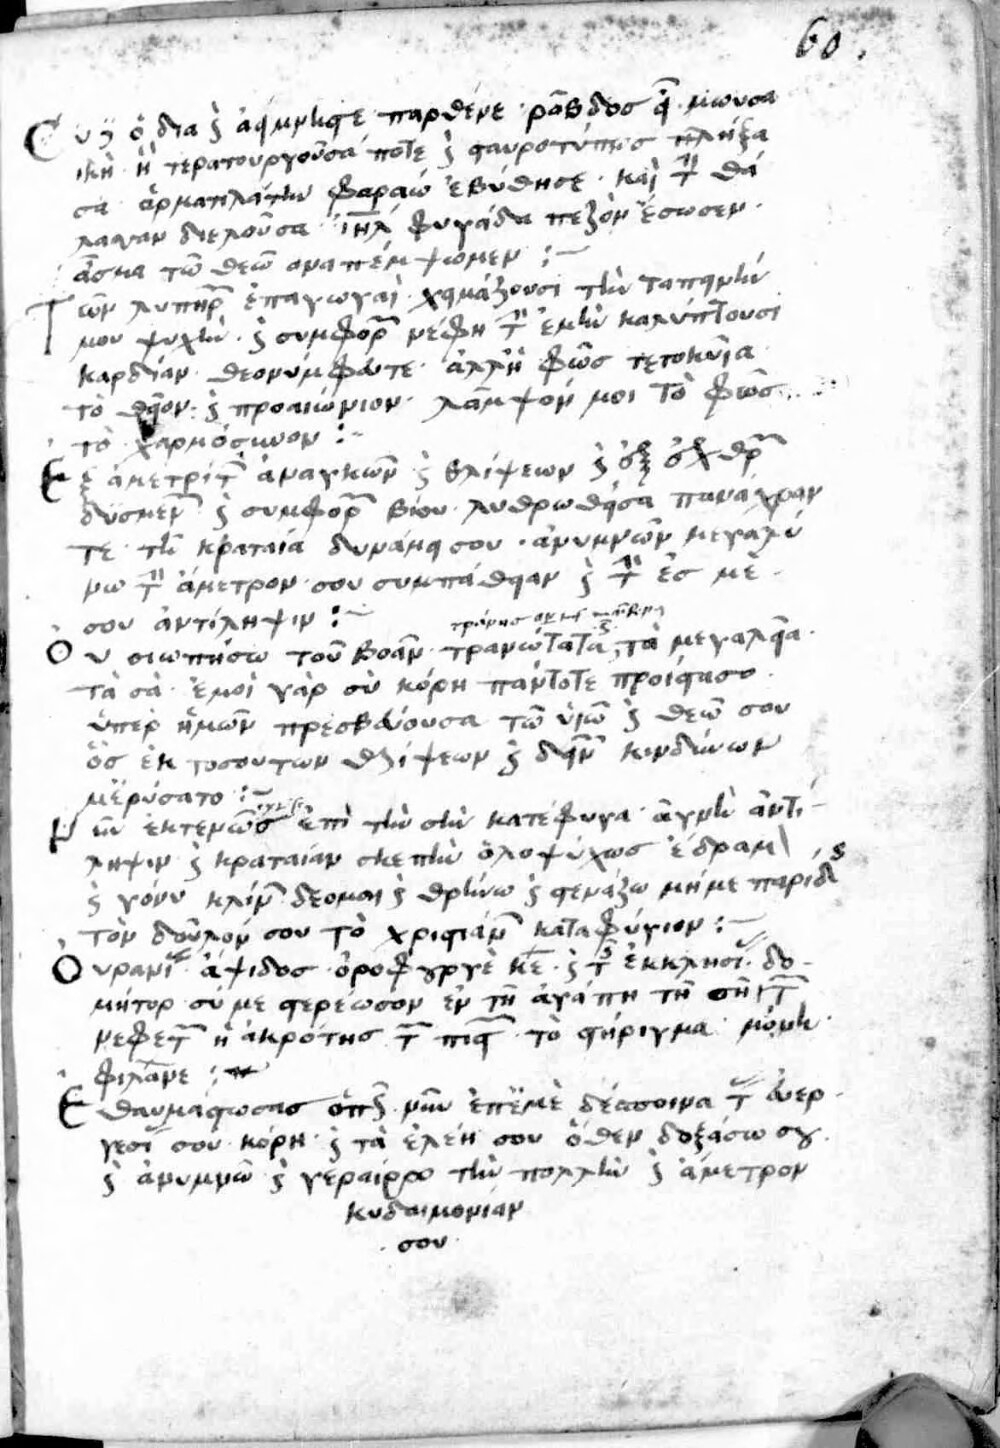 60.
παρθένε ῥάβδος
ϊκὴ ἡ τερατουργοῦσά ποτε σταυροτύπως πλήξα
σα ἁρματηλάτην φαραὼ ἐβύθησε καὶ θά
λασσαν διελοῦσα ϊηλ φυγάδα πεζὸν ἔσωσεν
ᾶσμα τῶ θεῶ αναπέμψωμεν :~
Τῶν λυπηρ ἐπαγωγαὶ χειμάζουσι τὴν ταπεινήν
μου ψυχὴν κ συμφορ νέφη τ ἐμὴν καλύπτουσι
καρδίαν θεονύμφευτε ἀλλ ἡ φῶς τετοκυῖα
τὸ θεῖον κ προαιώνιον λάμψόν μοι τὸ φῶς
τὸ χαρμόσυνον :~
Ἐξ ἀμετρίτ ἀναγκῶν κ θλίψεων κ ἐξ ἐχθρ
δυσμεν κ συμφορ βίου λυθρωθεῖσα πανάχραν
τε τῆ κραταιά δυνάμει σου ἀνυμνῶν μεγαλύ
νω τ ἄμετρον σου συμπάθειαν κ τ ἐς μὲ
σου ἀντίληψιν :~
Οὐ σιωπήσω τοῦ βοᾶν τρανώτατα τὰ μεγαλεῖα
τὰ σὰ ἐμοὶ γὰρ σὺ κόρη πάντοτε προίστασο
ὑπὲρ ἡμῶν πρεσβεύουσα τῶ ὑιῶ κ θεῶ σου
ὃς ἐκ τοσουτων θλίψεων κ δειν κινδύνων
μ ἐρύσατο :~
Νῦν ἐκτενῶς ἐπὶ τὴν σὴν κατέφυγα ἁγνὴ ἀντί
ληψιν κ κραταίαν σκεπὴν ὁλοψύχως ἔδραμ
κ γόνυ κλίν δεομαι κ θρήνω κ στενάζω μή με παρίδς
τὸν δοῦλόν σου τὸ χριστιάν καταφύγιον :~
Οὐρανί ἁψιδος ὀροφουργὲ κε κ τ ἐκκλησί δο
μήτορ σύ με στερέωσον ἐν τῆ ἀγάπη τῆ σῆ τ
νεφετ ἡ ἀκρότης τ πιστ τὸ στήριγμα μόνε
φιλανε :~
Ἐθαυμάστωσας νῦν ἐπ ἐμὲ δέσποινα τ ἐυερ
γεσί σου κόρη κ τὰ ἐλέη σου ὅθεν δοξάσω σε
κ ἀνυμνῶ κ γεραίρω τὴν πολλὴν κ ἄμετρον
κυδαιμονίαν
σου